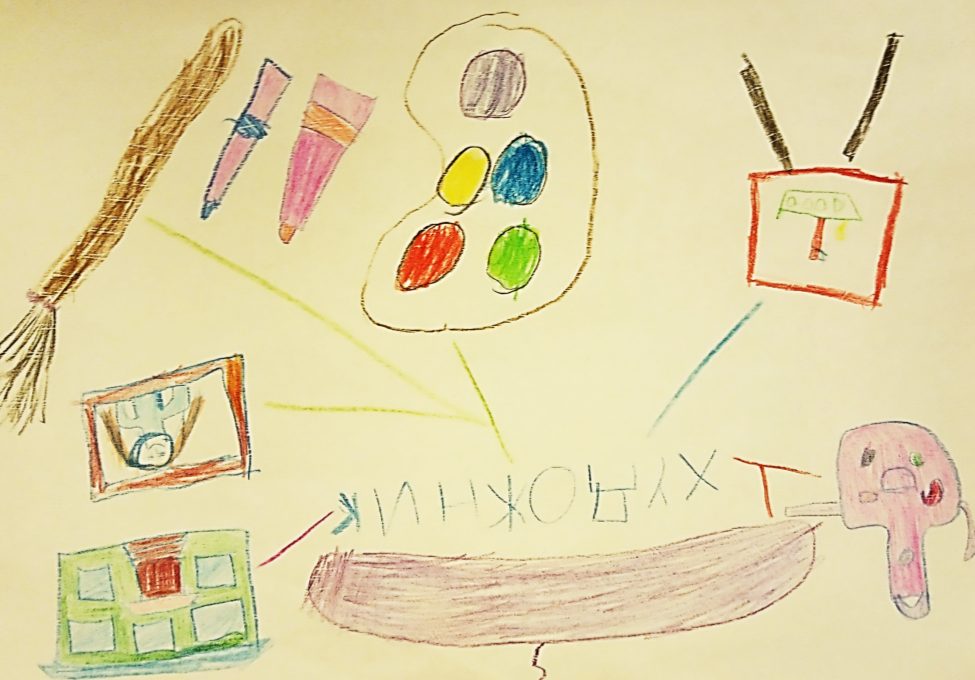 ХУДОЖНИК